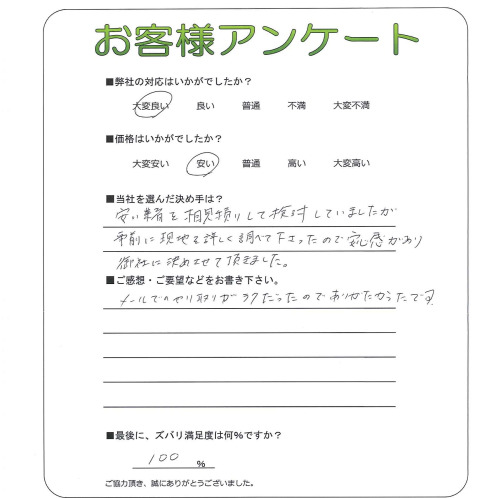 お客様アンケート
■弊社の対応はいかがでしたか？
大変良い 良い 普通 不満 大変不満
■価格はいかがでしたか？
大変安い 安い 普通 高い 大変高い
■当社を選んだ決め手は？
安い業者を相見積りして検討していましたが
事前に現地を詳しく調べて下さったので安心感があり
御社に決めさせて頂きました。
■ご感想・ご要望などをお書き下さい。
メールでのやり取りがラクだったのでありがたかったです
■最後に、ズバリ満足度は何%ですか？
100 %
ご協力頂き、誠にありがとうございました。